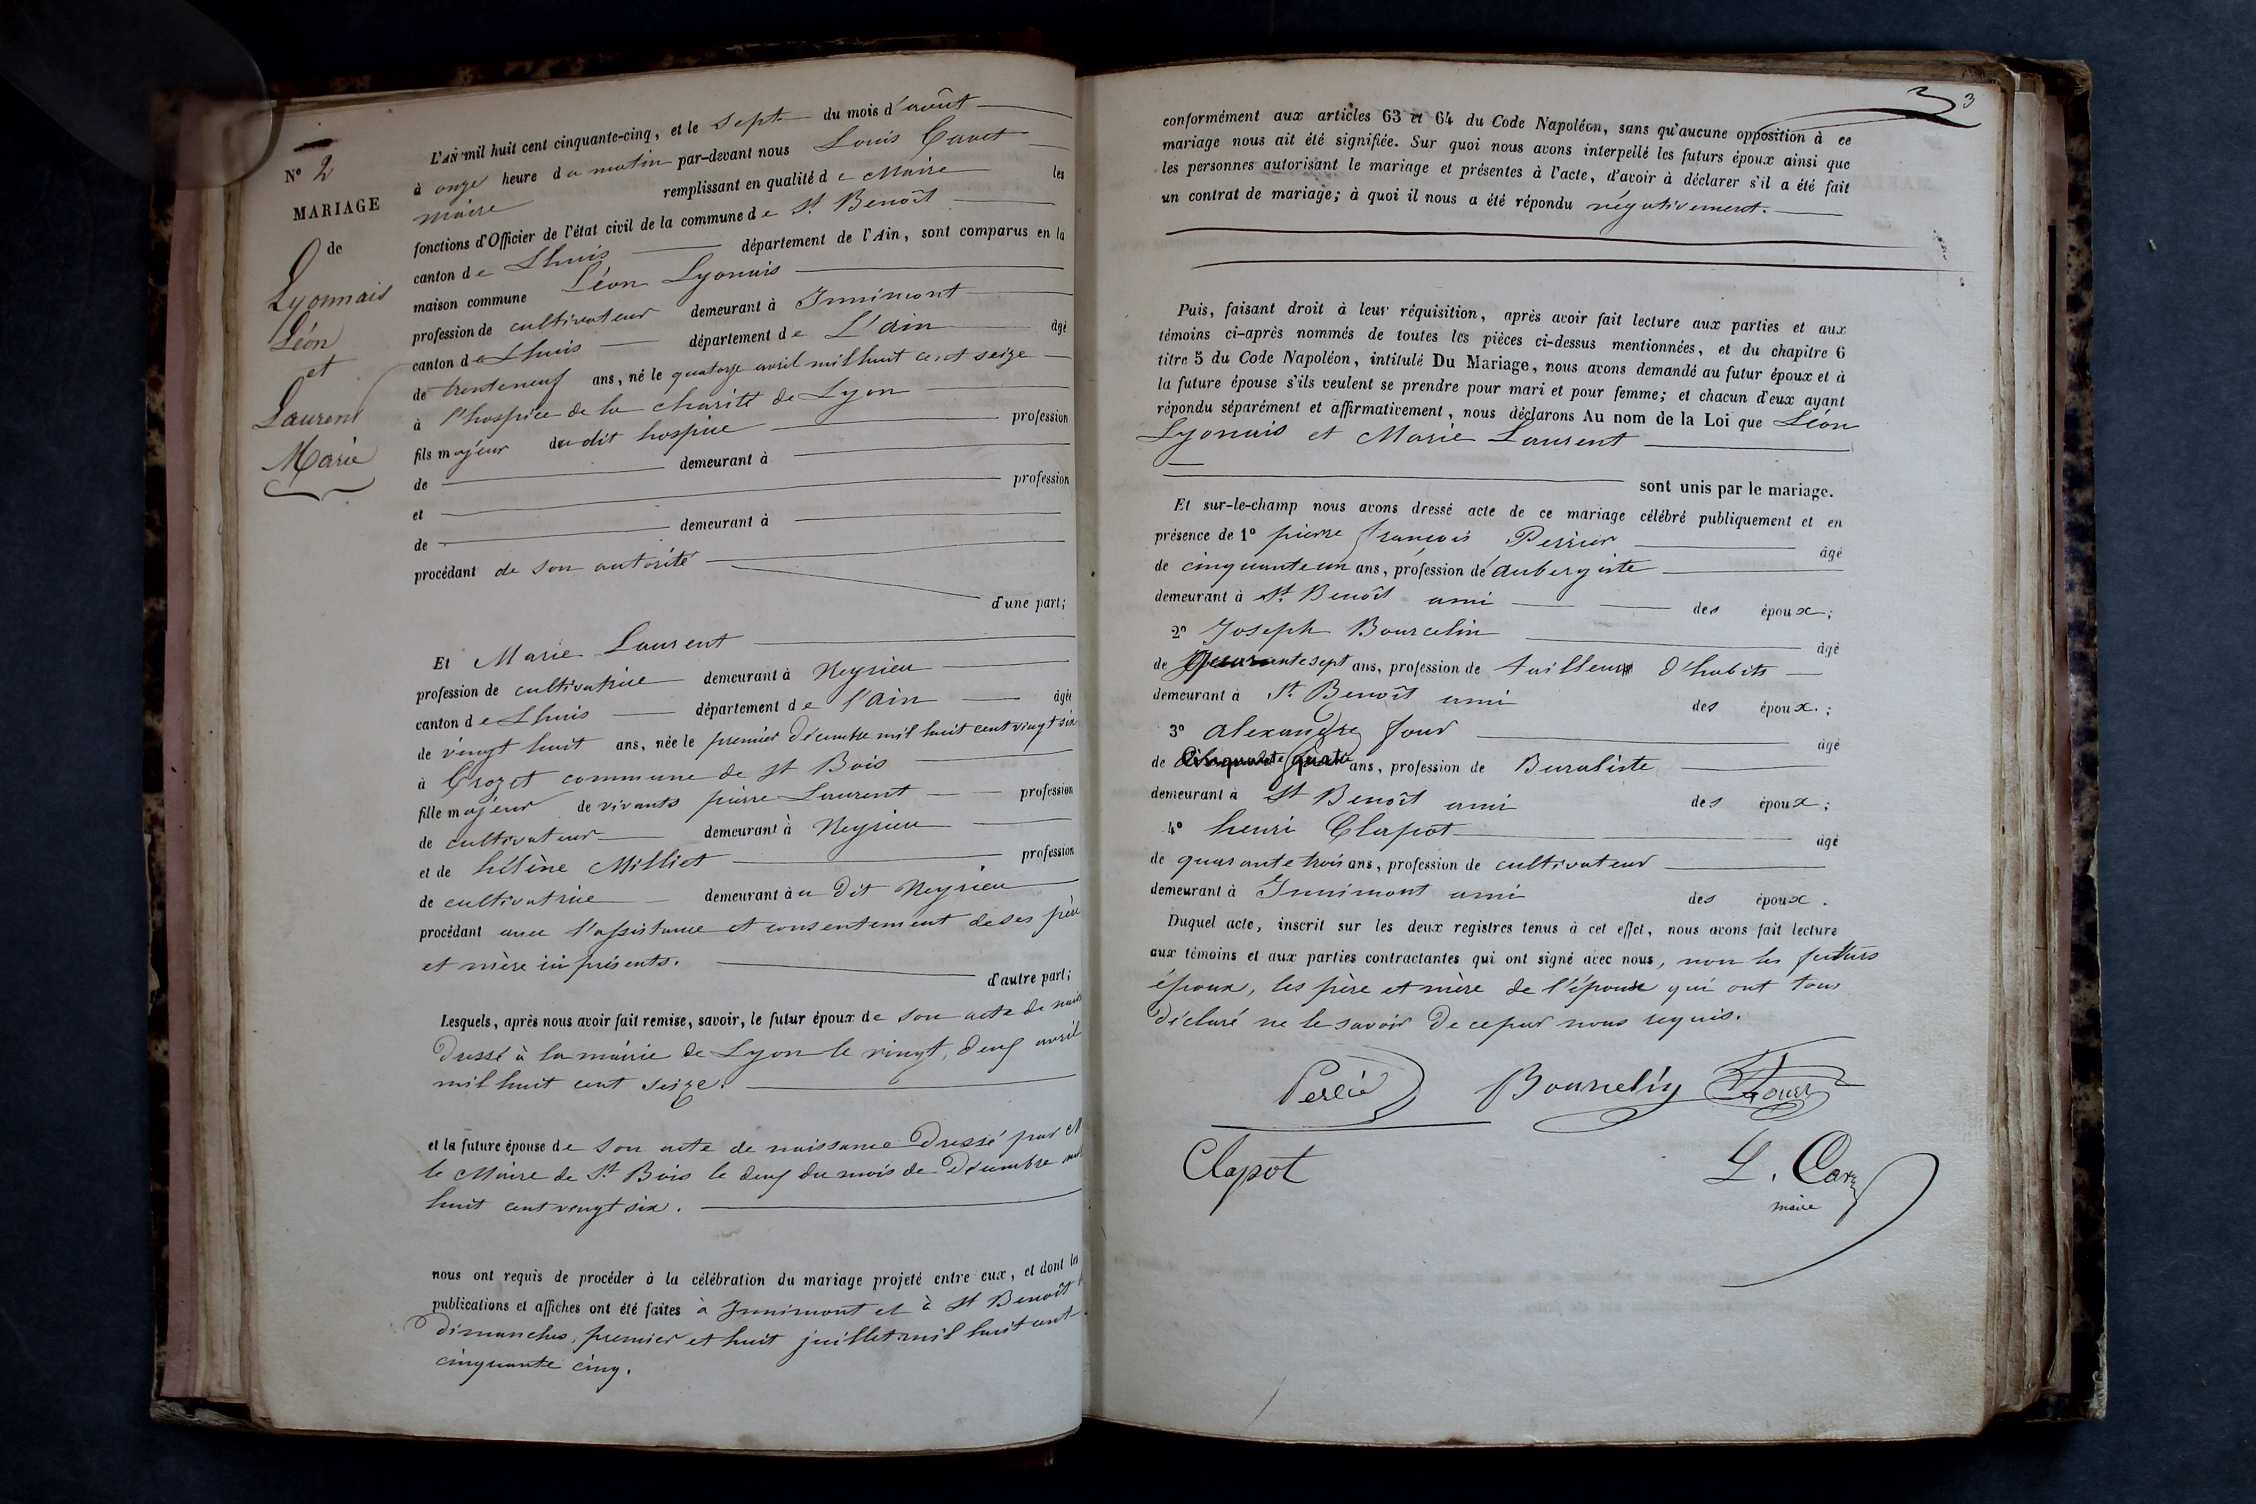 N° 2
MARIAGE
de
Lyonnais
Léon
et
Laurent
Marie
L'AN mil huit cent cinquante-cinq, et le sept du mois d'août
à onze heure du matin par-devant nous Louis
maire remplissant en qualité de Maire les
fonctions d'Officier de l'état civil de la commune de St Benoît
canton de Lhuis département de l'Ain, sont comparus en la
maison commune Léon Lyonnais
profession de cultivateur demeurant à Innimont
canton de Lhuis département de L'ain âgé
de trente neuf ans, né le quatorze avril mil huit cent seize
à l'hospice de la charité de Lyon
fils majeur du dit hospice profession
de demeurant à
et profession
de demeurant à
procédant de son autorité
d'une part;
Et Marie Laurent
profession de cultivatrice demeurant à Neyrieu
canton de Lhuis département de l'ain âgée
de vingt huit ans, née le premier décembre mil huit cent vingt six
à Crozet commune de St Bois
fille majeur de vivants pierre Laurent profession
de cultivateur demeurant à Neyrieu
et de hélène Milliet profession
de cultivatrice demeurant au dit Neyrieu
procédant avec l'assistance et consentement de ses père
et mère ici présents.
d'autre part;
Lesquels, après nous avoir fait remise, savoir, le futur époux de son acte de
Dressé à la mairie de Lyon le vingt deux avril
mil huit cent seize.
et la future épouse de son acte de naissance Dressé par M
le Maire de St Bois le deux du mois de Décembre mil
huit cent vingt six.
nous ont requis de procéder à la célébration du mariage projeté entre eux, et dont les
publications et affiches ont été faites à Innimont et à St Benoît
Dimanches, premier et huit juillet mil huit cent
cinquante cinq.
3
conformément aux articles 63 et 64 du Code Napoléon, sans qu'aucune opposition à ce
mariage nous ait été signifiée. Sur quoi nous avons interpellé les futurs époux ainsi que
les personnes autorisant le mariage et présentes à l'acte, d'avoir à déclarer s'il a été fait
un contrat de mariage; à quoi il nous a été répondu négativement.
Puis, faisant droit à leur réquisition, après avoir fait lecture aux parties et aux
témoins ci-après nommés de toutes les pièces ci-dessus mentionnées, et du chapitre 6
titre 5 du Code Napoléon, intitulé Du Mariage, nous avons demandé au futur époux et à
la future épouse s'ils veulent se prendre pour mari et pour femme; et chacun d'eux ayant
répondu séparément et affirmativement, nous déclarons Au nom de la Loi que Léon
Lyonnais et Marie Laurent
sont unis par le mariage.
Et sur-le-champ nous avons dressé acte de ce mariage célébré publiquement et en
présence de 1° pierre françois Perrier âgé
de cinquante un ans, profession de aubergiste
demeurant à St Benoît ami des époux;
2° Joseph Bourcelin âgé
de quarante sept ans, profession de tailleur d'habits
demeurant à St Benoît ami des époux.;
3° alexandre four âgé
de Cinquante quatre ans, profession de Buraliste
demeurant à St Benoît ami des époux;
4° henri Clapot âgé
de quarante trois ans, profession de cultivateur
demeurant à Innimont ami des époux.
Duquel acte, inscrit sur les deux registres tenus à cet effet, nous avons fait lecture
aux témoins et aux parties contractantes qui ont signé avec nous, non les futurs
époux, les père et mère de l'épouse qui ont tous
déclaré ne le savoir de ce par nous requis.
Bourcelin Four
Clapot
maire